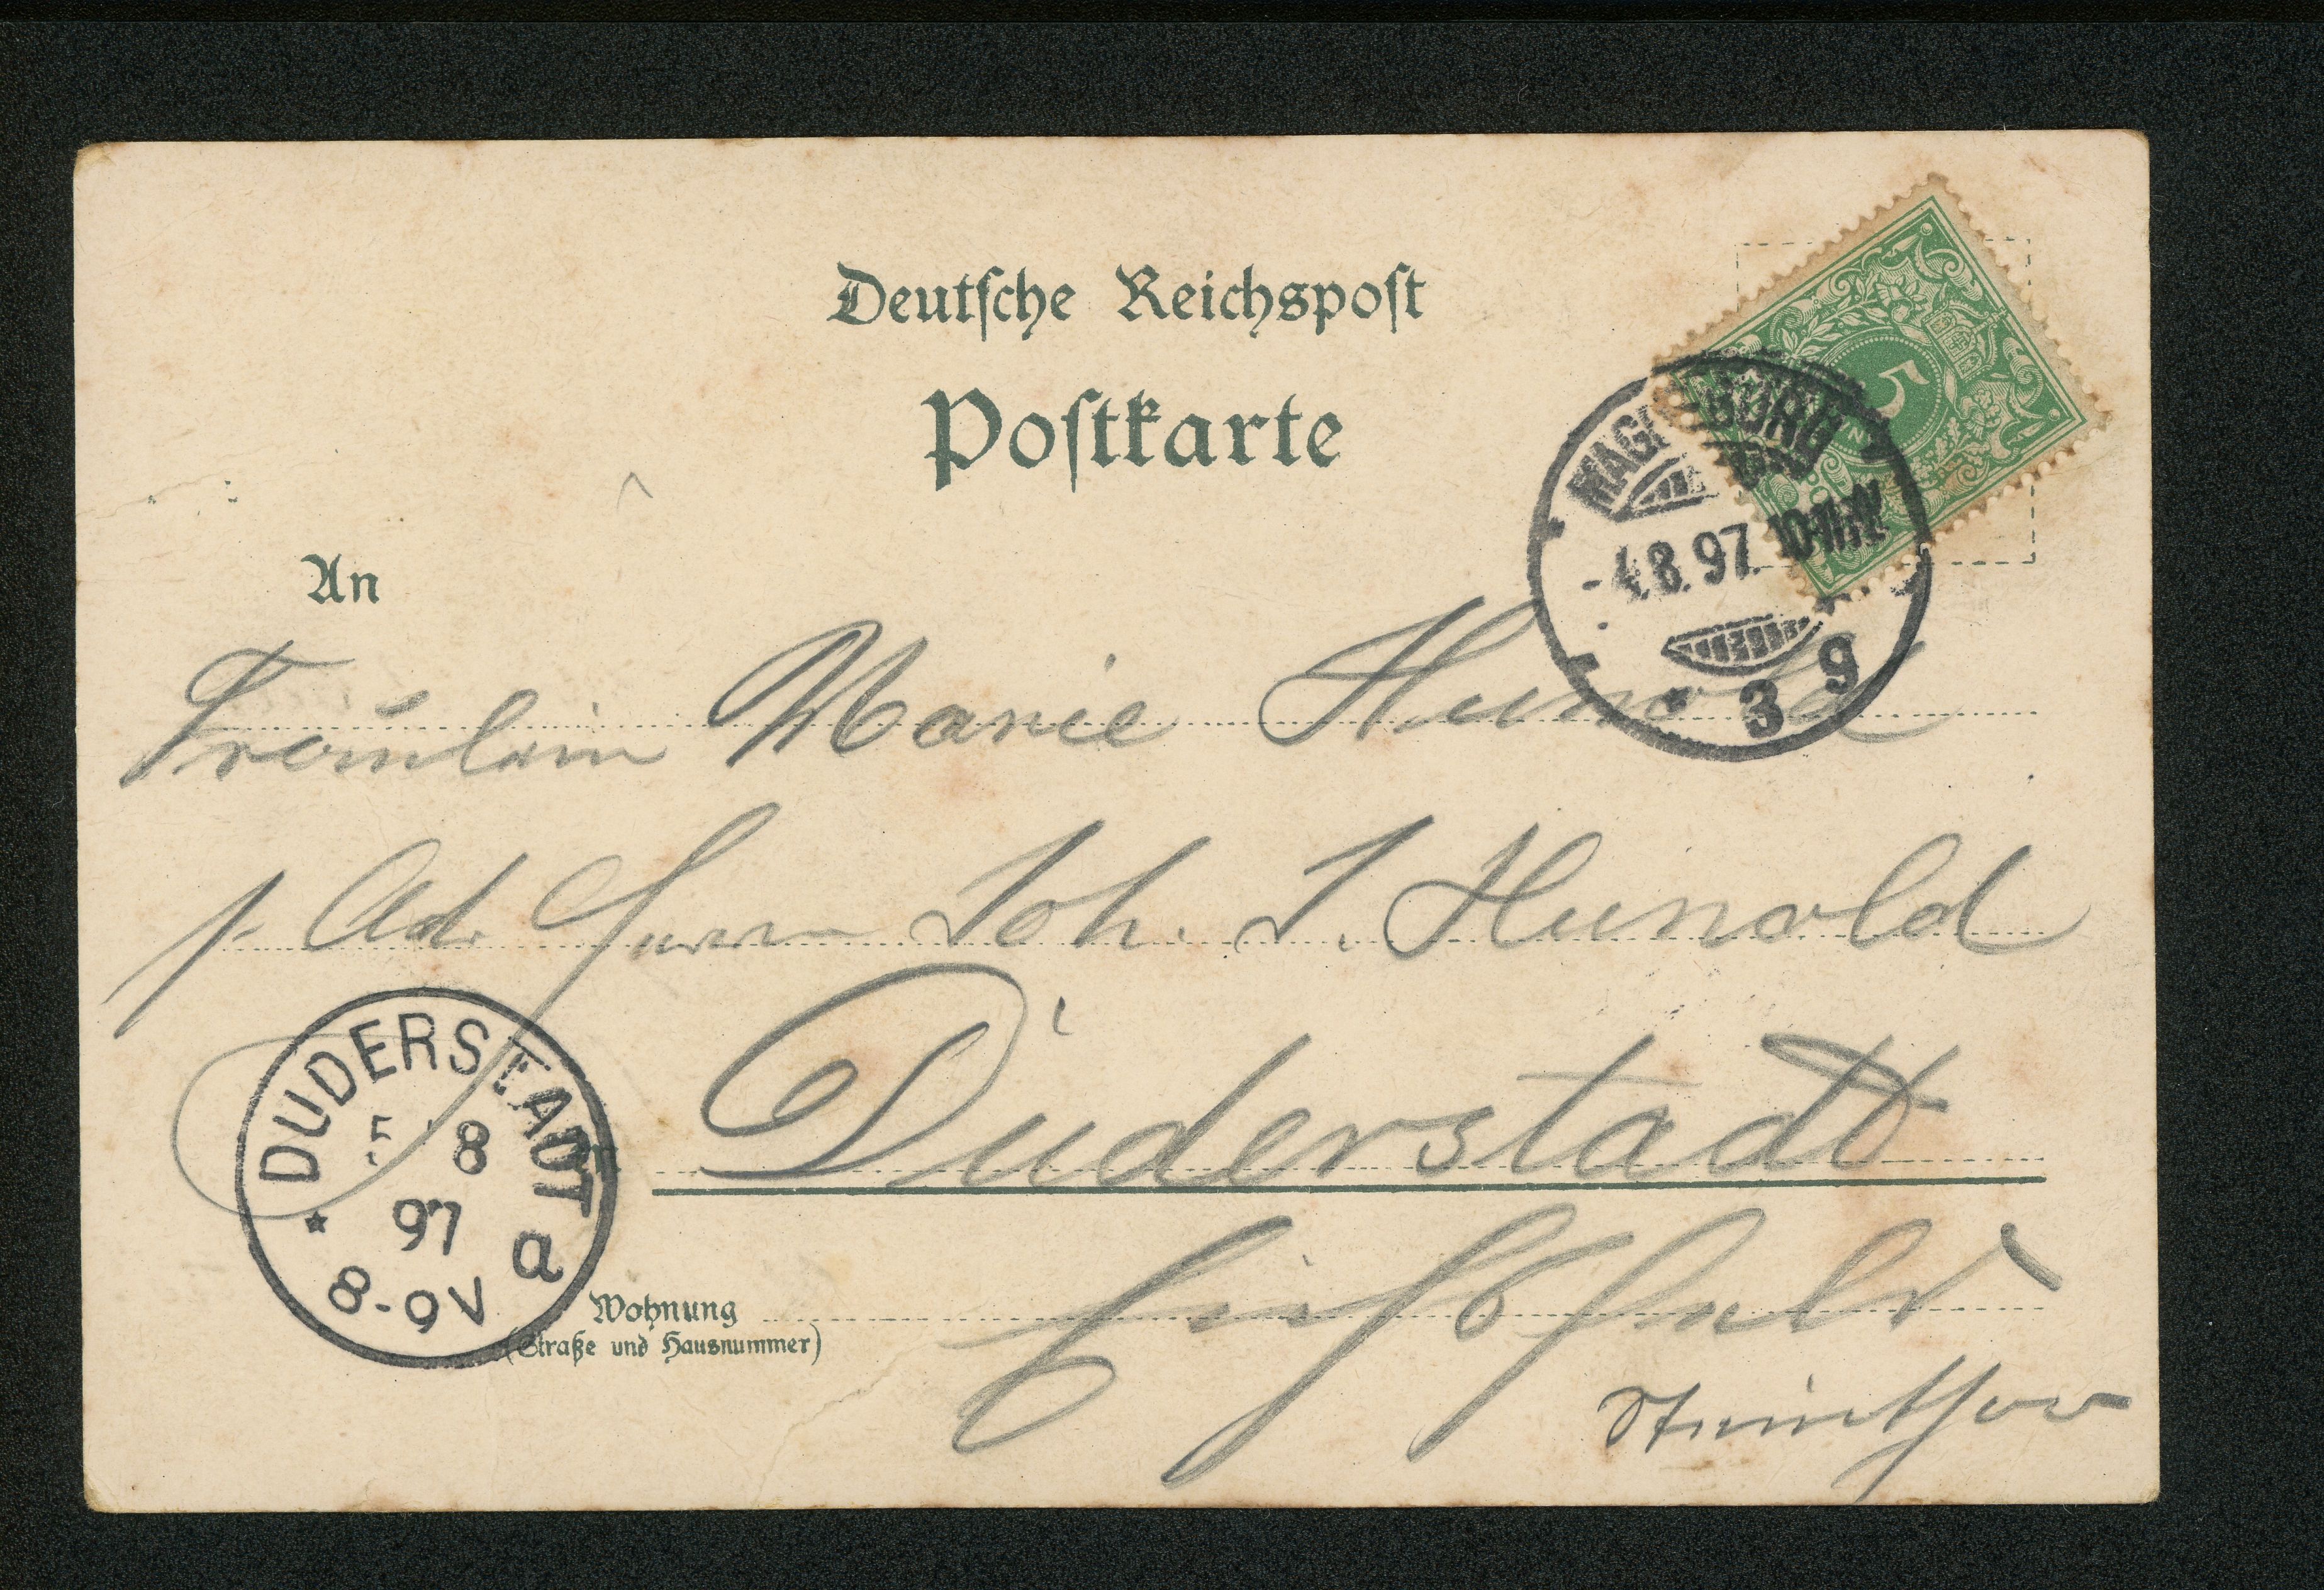 Deutsche Reichspost
Postkarte
5
MAGDEBURG
-4.8.97. 10-11N
* 3 g
An
Fräulein Marie Hunold
p. Adr. Herrn Joh. J. Hunold
Duderstadt
Eichsfeld
Steinthor
DUDERSTADT
5 8
97
8-9V
* a
Wohnung
(Straße und Hausnummer)